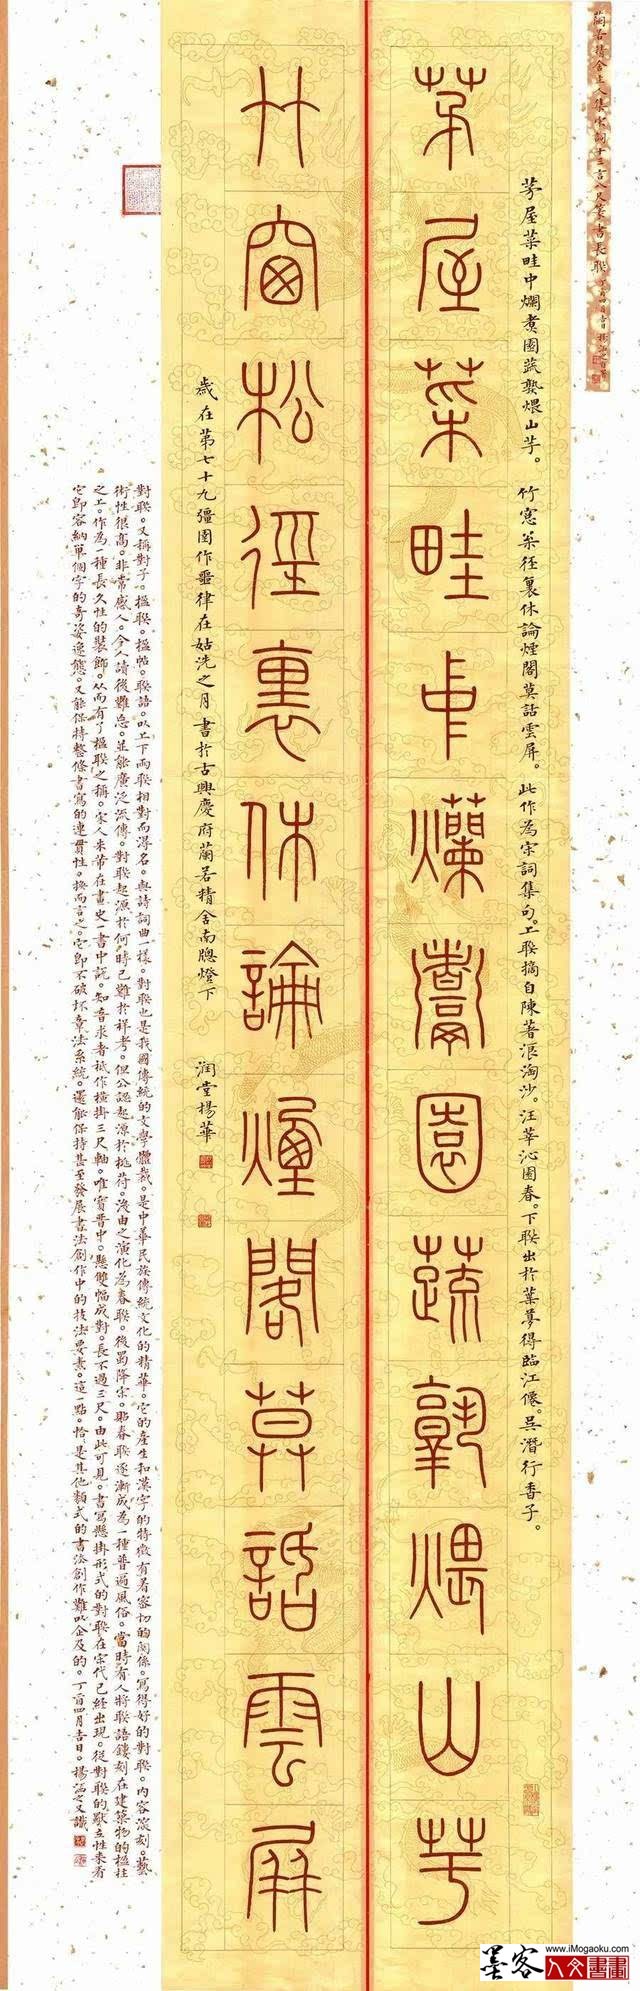 蘭若精舍主人集宋詞十三言八尺篆書長聯
茅屋菜畦中爛煑園蔬熟煨山芋。竹窓松徑裏休論煙閣莫話雲屏。此作為宋詞集句。上聯摘自陳著浪淘沙。汪莘沁園春。下聯出於葉夢得臨江僊。吳潛行香子。
茅屋菜畦中爛煑園蔬熟煨山芋
竹窗松徑裏休論煙閣莫話雲屏
歲在第七十九彊圉作噩律在姑洗之月書於古興慶府蘭若精舍南牕燈下 润堂楊華
對聯。又稱對子。楹聯。楹帖。聯語。以上下兩聯相對而得名。與詩詞曲一樣。對聯也是我國傳統的文學體裁。是中華民族傳統文化的精華。它的產生和漢字的特徵有着密切的関係。寫得好的對聯。內容深刻。藝
術性很高。非常感人。令人讀後難忘。並能廣泛流傳。對聯起源於何時已難於祥考。但公認起源於桃符。後由之演化為春聯。後蜀降宋。貼春聯逐漸成為一種普遍風俗。當時有人將聯語鏤刻在建築物的楹柱
之上。作為一種長久性的裝飾。从而有了楹聯之稱。宋人米芾在畫史一書中說。知音求者袛作橫掛三尺軸。唯寶晋中。懸雙幅成對。長不過三尺。由此可見。書寫懸掛形式的對聯在宋代已經出現。從對聯的獻立性来看
它即容納單個字的奇姿逸態。又能保持整條書寫的連貫性。換而言之。它即不破坏章法系統。還能保持甚至發展書法創作中的技法要素。這一點。恰是其他類式的書法創作難以企及的。丁酉四月吉日。楊华之又識
www.iMogaoku.com
墨客人文書畫